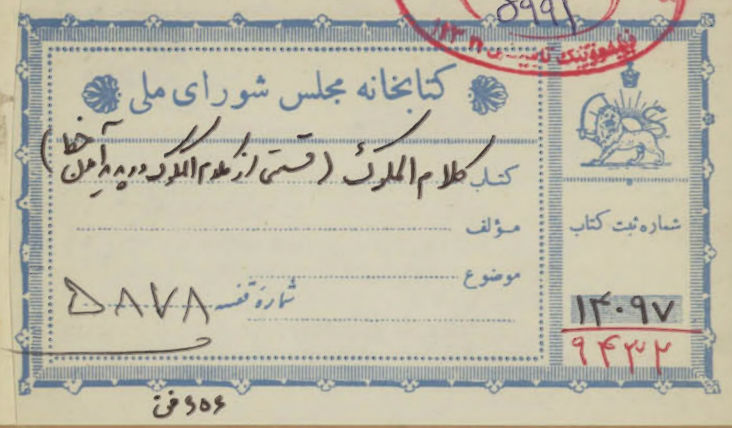 ۵۹۹۱
کتابخانه مجلس شورای ملی
کتاب کلام الملوک (قسمتی از کلام الملوک در
مؤلف
موضوع
شماره قفسه ۵۸۷۸
شماره ثبت کتاب
۱۴۰۹۷
۹۴۳۲